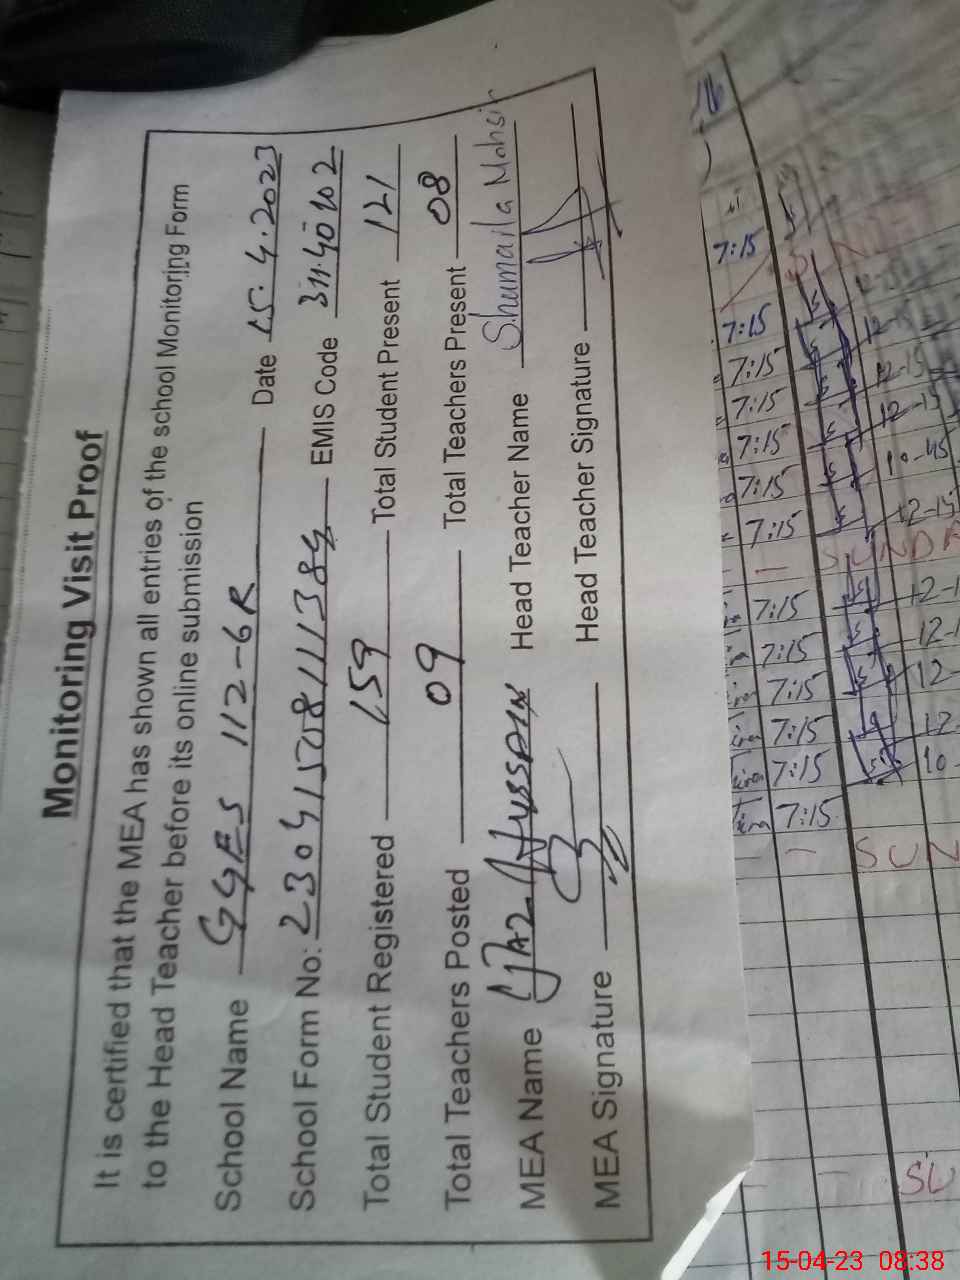 Monitoring Visit Proof
It is certified that the MEA has shown all entries of the school Monitoring Form
to the Head Teacher before its online submission
School Name GGES 112-6R Date 15.4.2023
School Form No: EMIS Code
Total Student Registered 159 Total Student Present 121
Total Teachers Posted 09 Total Teachers Present 08
MEA Name Hussain Head Teacher Name Shumaila Mohsin
MEA Signature Head Teacher Signature
7:15
7:15 12-15
7:15 12-15
7:15 12-15
7:15 10-45
7:15
7:15 12-15
SUNDA
7:15 12-1
7:15 12-1
7:15 12-
7:15 12-
7:15 10-
7:15
SUN
SU
15-04-23 08:38